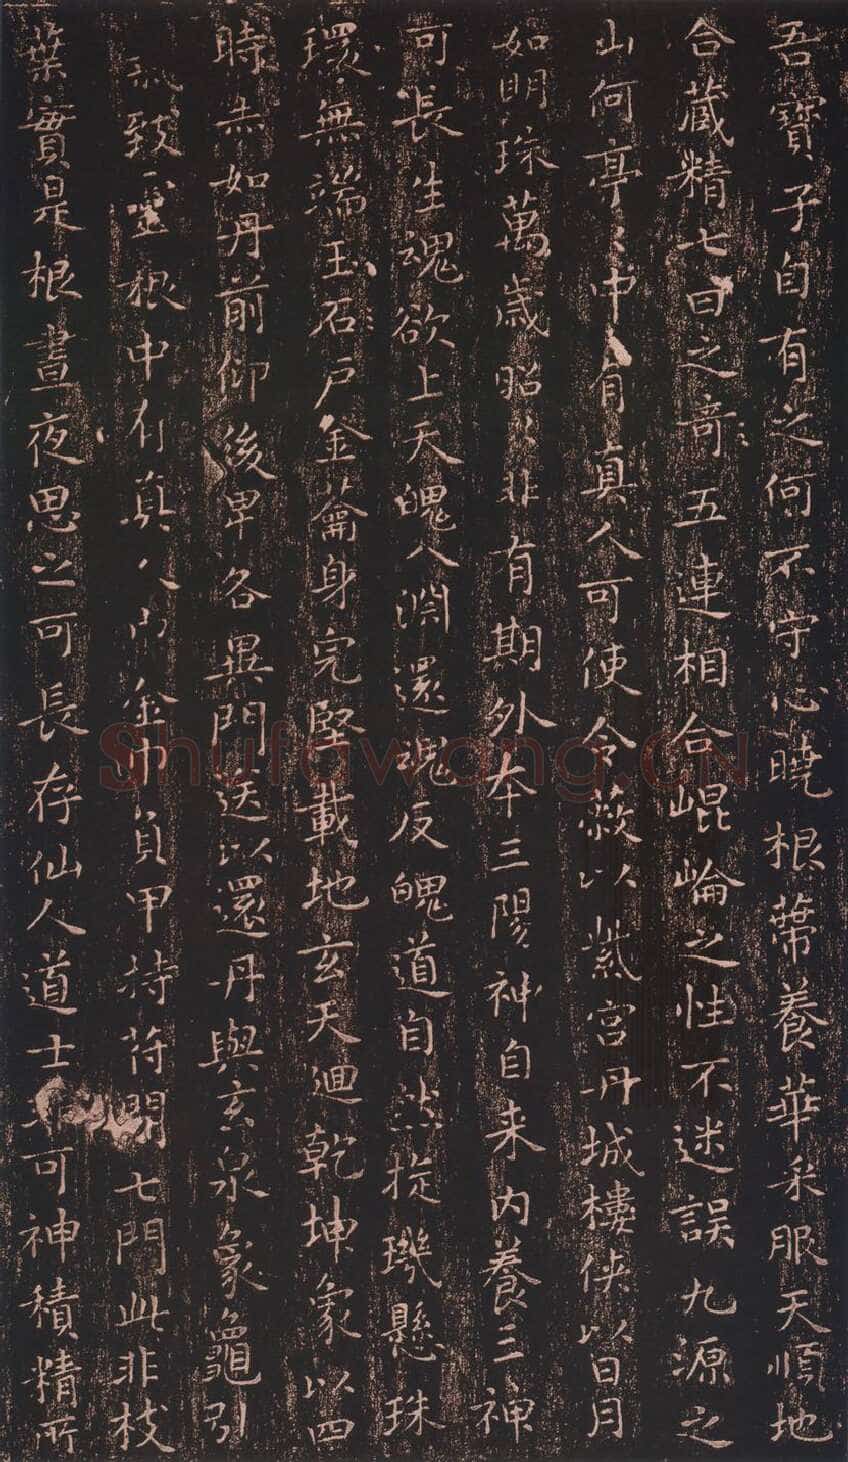 吾寶子自有之何不守心曉根蔕養華采服天順地
合藏精七日之奇五連相合崐崘之性不迷誤九源之
山何亭〻中有真人可使令蔽以紫宮丹城樓俠以日月
如明珠萬歲昭〻非有期外本三陽神自来内養三神
可長生魂欲上天魄入淵還魂反魄道自然旋璣懸珠
環無端玉石戶金蘥身完堅載地玄天迴乾坤象以四
時赤如丹前仰後卑各異門送以還丹與玄泉象龜引
氣致靈根中有真人巾金巾負甲持苻開七門此非枝
葉實是根晝夜思之可長存仙人道士可神積精所
Shufawang.CN